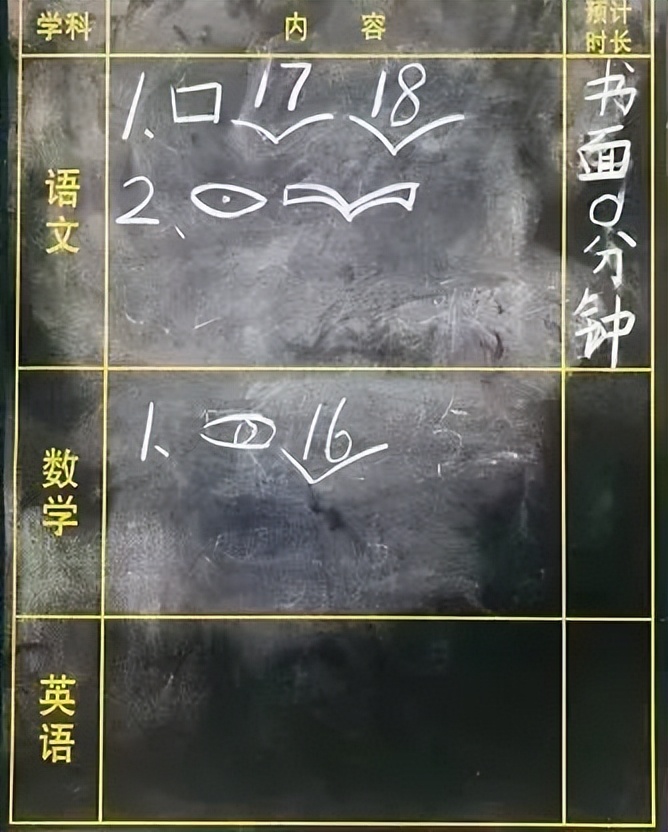 学科 内容 预计时长
语文
1、口 17 18
2、
书面0分钟
数学
1、 16
英语